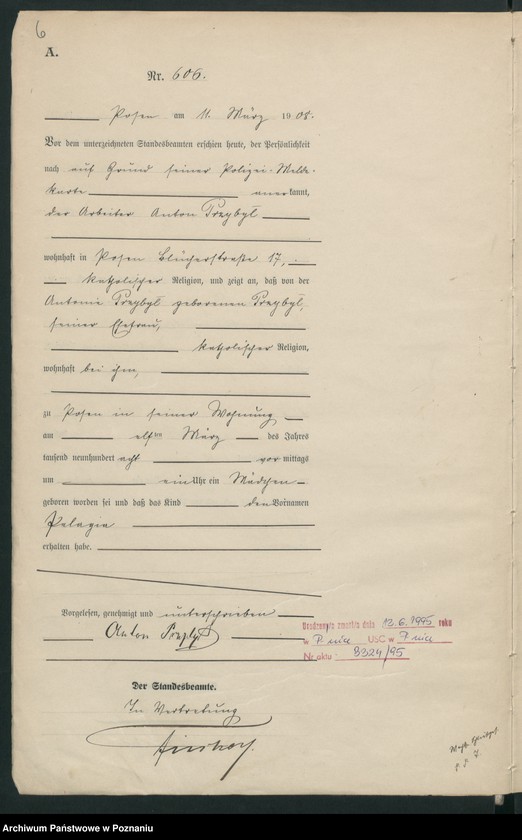 6
A.
Nr. 606.
Posen am 11. März 1908.
Vor dem unterzeichneten Standesbeamten erschien heute, der Persönlichkeit
nach auf Grund seiner Polizei-Melde-
karte anerkannt,
der Arbeiter Anton Przybyl
wohnhaft in Posen Blücherstraße 17,
katholischer Religion, und zeigt an, daß von der
Antonie Przybyl geborenen Przybyl,
seiner Ehefrau,
katholischer Religion,
wohnhaft bei ihm,
zu Posen in seiner Wohnung
am elften März des Jahres
tausend neunhundert acht vormittags
um ein Uhr ein Mädchen
geboren worden sei und daß das Kind den Vornamen
Pelagia
erhalten habe.
Vorgelesen, genehmigt und unterschrieben
Anton Przybyl
zmarła dnia 12.6.1995 roku
w P-niu USC w P-niu
Nr aktu 3324/95
Der Standesbeamte.
In Vertretung
Archiwum Państwowe w Poznaniu